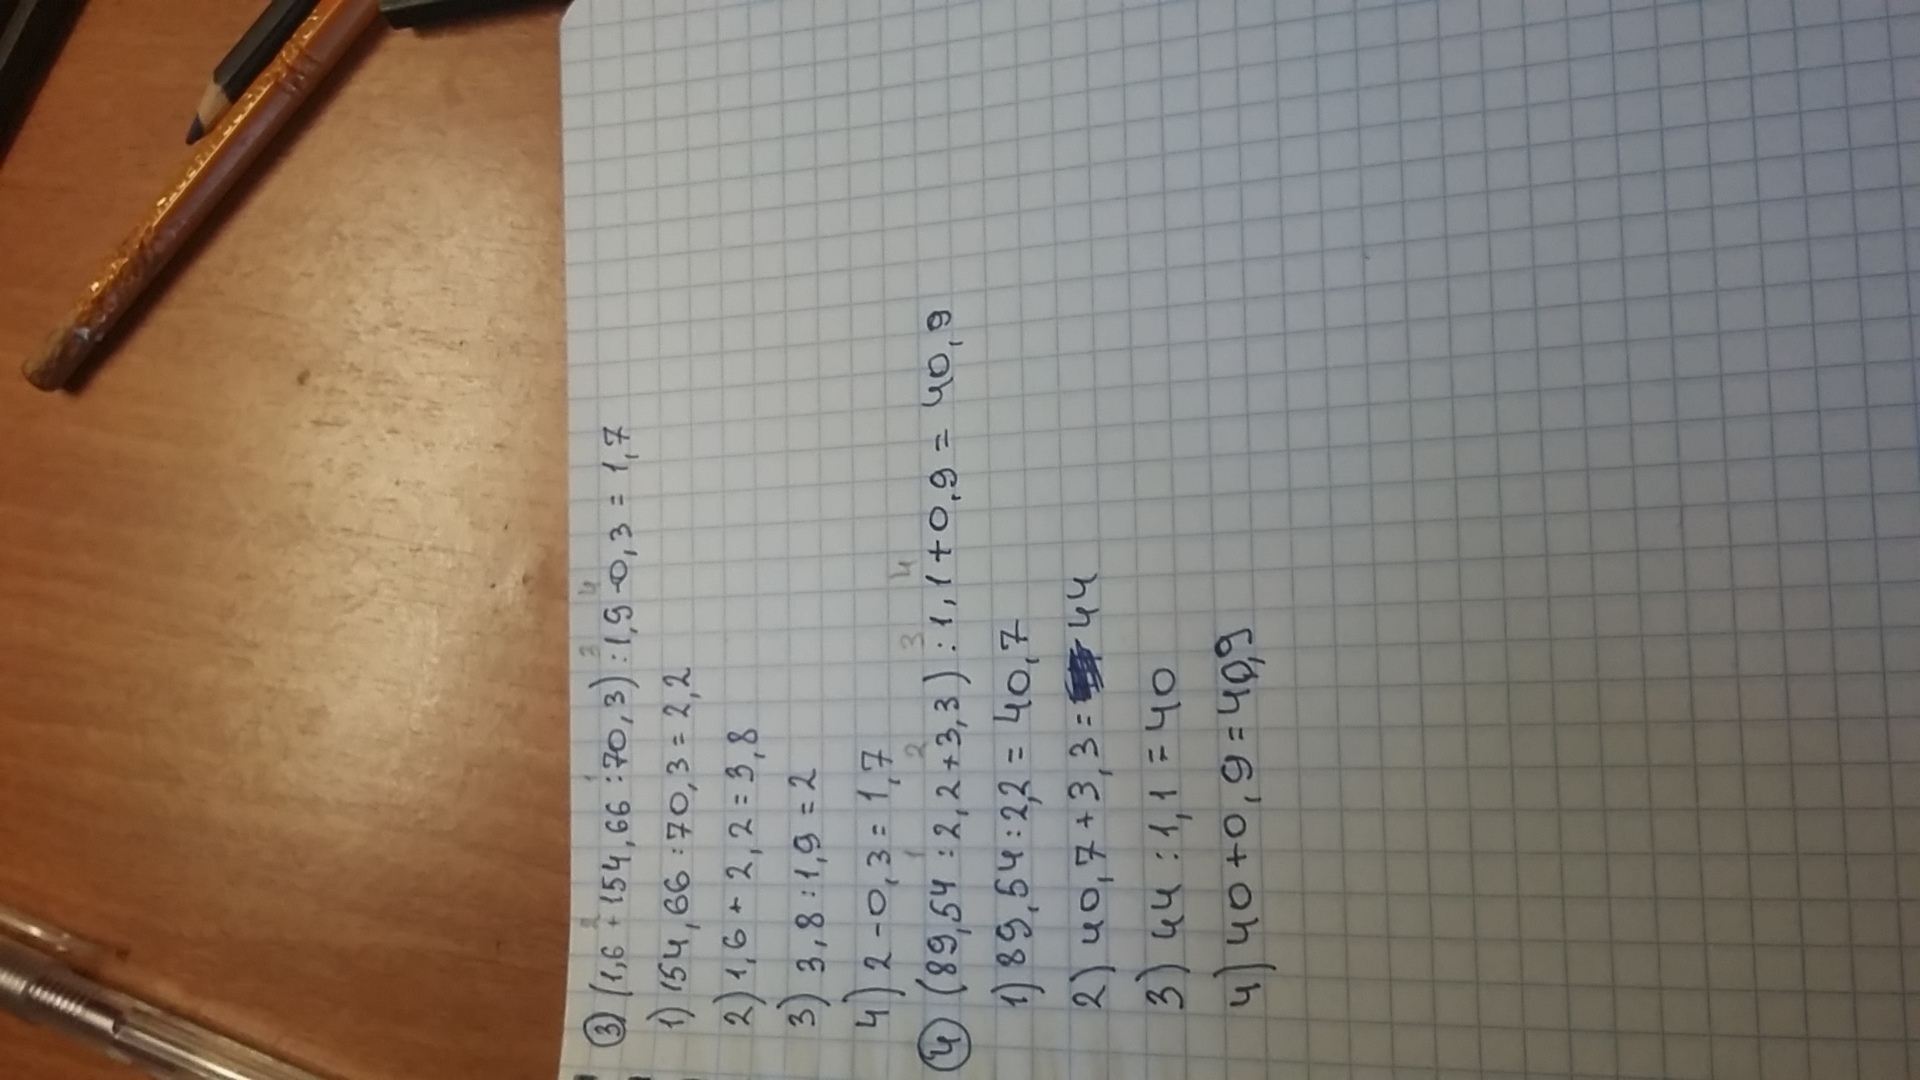 ③ (1,6 + 154,66 : 70,3) : 1,9 - 0,3 = 1,7
1) 154,66 : 70,3 = 2,2
2) 1,6 + 2,2 = 3,8
3) 3,8 : 1,9 = 2
4) 2 - 0,3 = 1,7
④ (89,54 : 2,2 + 3,3) : 1,1 + 0,9 = 40,9
1) 89,54 : 2,2 = 40,7
2) 40,7 + 3,3 = 44
3) 44 : 1,1 = 40
4) 40 + 0,9 = 40,9